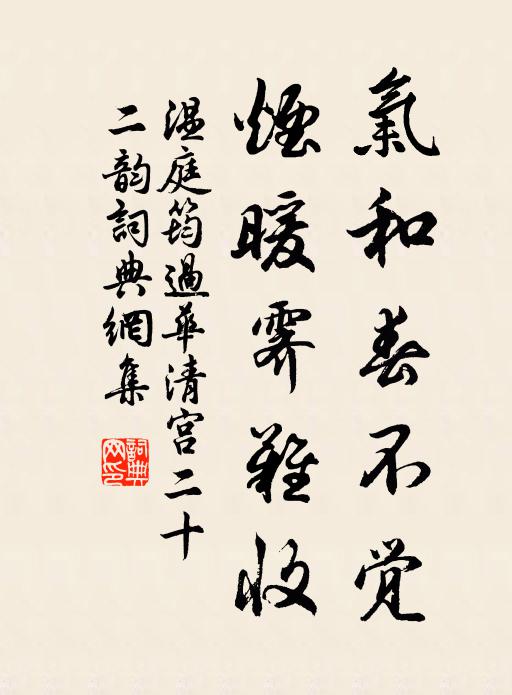 氣和春不覚
煙暖霽難收
温庭筠過華清宮二十
二韵詞典網集
詞典
网印